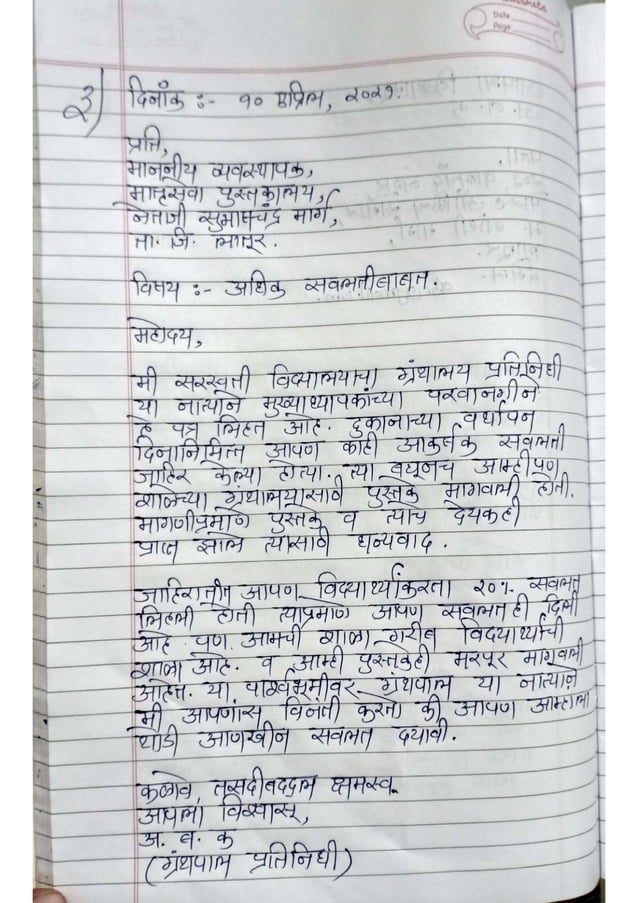 classmate
Date
Page
३) दिनाँक :- १० एप्रिल, २०२१.
प्रति,
माननीय व्यवस्थापक,
मातृसेवा पुस्तकालय,
नेताजी सुभाषचंद्र मार्ग,
ता. जि. लातूर.
विषय :- अधिक सवलतीबाबत.
महोदय,
मी सरस्वती विद्यालयाचा ग्रंथालय प्रतिनिधी
या नात्याने मुख्याध्यापकांच्या परवानगीने
हे पत्र लिहित आहे. दुकानाच्या वर्धापन
दिनानिमित्त आपण काही आकर्षक सवलती
जाहिर केल्या होत्या. त्या आम्हीपण
शाळेच्या ग्रंथालयासाठी पुस्तके मागवली होती.
मागणीप्रमाणे पुस्तके व त्याचे देयकही
प्राप्त झाले त्यासाठी धन्यवाद.
जाहिरातीत आपण विद्यार्थ्यांकरता २०% सवलत
लिहली होती त्याप्रमाणे आपण सवलतही दिली
आहे. पण आमची शाळा गरीब विदयार्थ्यांची
शाळा आहे. व आम्ही पुस्तकेही भरपूर मागवली
आहेत. या पार्श्वभूमीवर ग्रंथपाल या नात्याने
मी आपणांस विनंती करतो की आपण आम्हाला
थोडी आणखीन सवलत दयावी.
कळावे, तसदीबददल क्षमस्व.
आपला विश्वासू,
अ. ब. क
(ग्रंथपाल प्रतिनिधी)